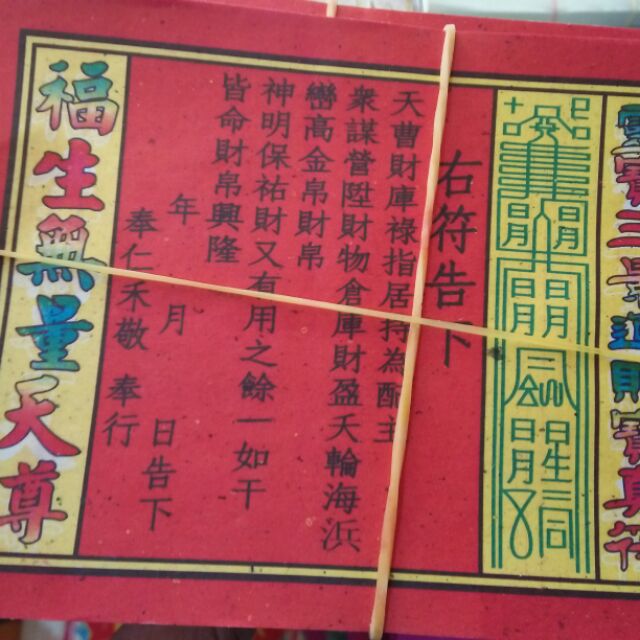 靈寳三景進財寳真符
右符告下
天曹財庫祿指居持為配主
衆謀營陞財物倉庫財盈天輪海浜
巒高金帛財帛
神明保祐財又有用之餘一如干
皆命財帛興隆
年 月 日告下
奉仁禾敬 奉行
福生無量天尊